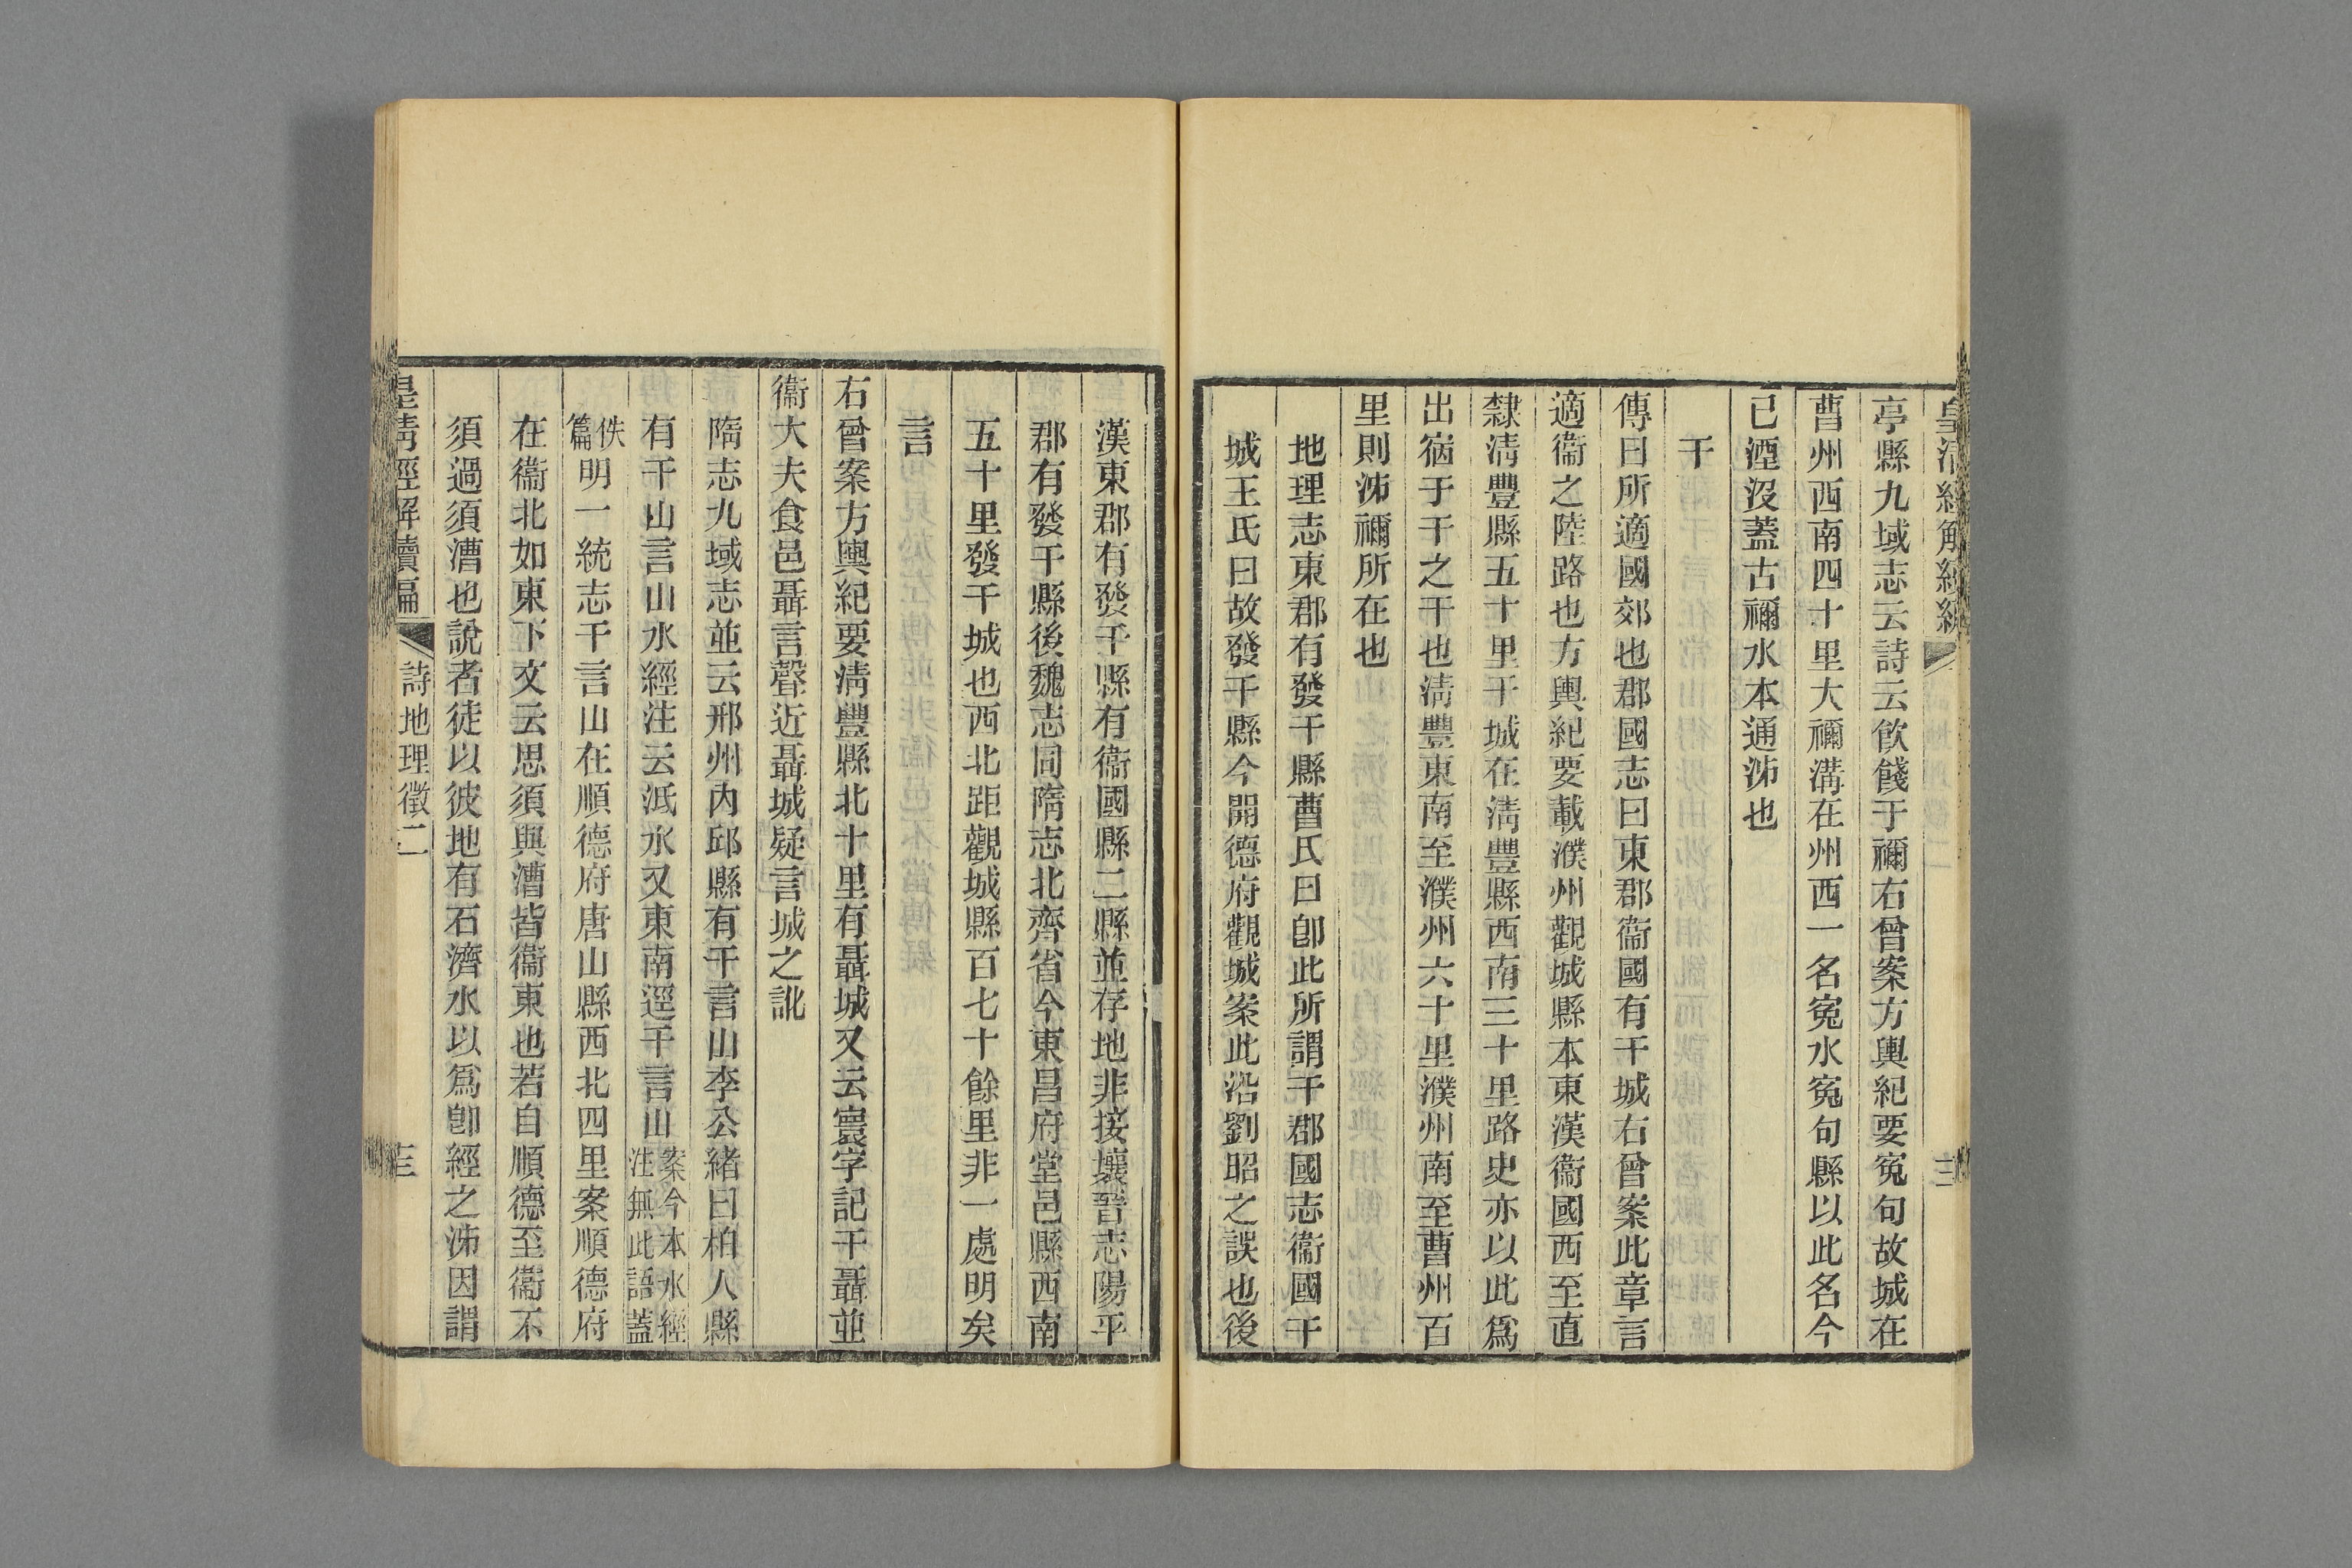 皇清經解續編
亭縣九域志云詩云飮餞于禰右曾案方輿紀要寃句故城在
曹州西南四十里大禰溝在州西一名寃水寃句縣以此名今
已湮沒蓋古禰水本通泲也
干
傳曰所適國郊也郡國志曰東郡衞國有干城右曾案此章言
適衞之陸路也方輿紀要載濮州觀城縣本東漢衞國西至直
隸淸豐縣五十里干城在淸豐縣西南三十里路史亦以此爲
出宿于干之干也淸豐東南至濮州六十里濮州南至曹州百
里則泲禰所在也
地理志東郡有發干縣曹氏曰卽此所謂干郡國志衞國干
城王氏曰故發干縣今開德府觀城案此沿劉昭之誤也後
漢東郡有發干縣有衞國縣二縣並存地非接壤晉志陽平
郡有發干縣後魏志同隋志北齊省今東昌府堂邑縣西南
五十里發干城也西北距觀城縣百七十餘里非一處明矣
言
右曾案方輿紀要淸豐縣北十里有聶城又云寰宇記干聶並
衞大夫食邑聶言聲近聶城疑言城之訛
隋志九域志並云邢州內邱縣有干言山李公緒曰柏人縣
有干山言山水經注云泜水又東南逕干言山案今本水經注無此語蓋
佚篇明一統志干言山在順德府唐山縣西北四里案順德府
在衞北如東下文云思須與漕皆衞東也若自順德至衞不
須過須漕也說者徒以彼地有石濟水以爲卽經之泲因謂
皇清經解續編
詩地理徵二